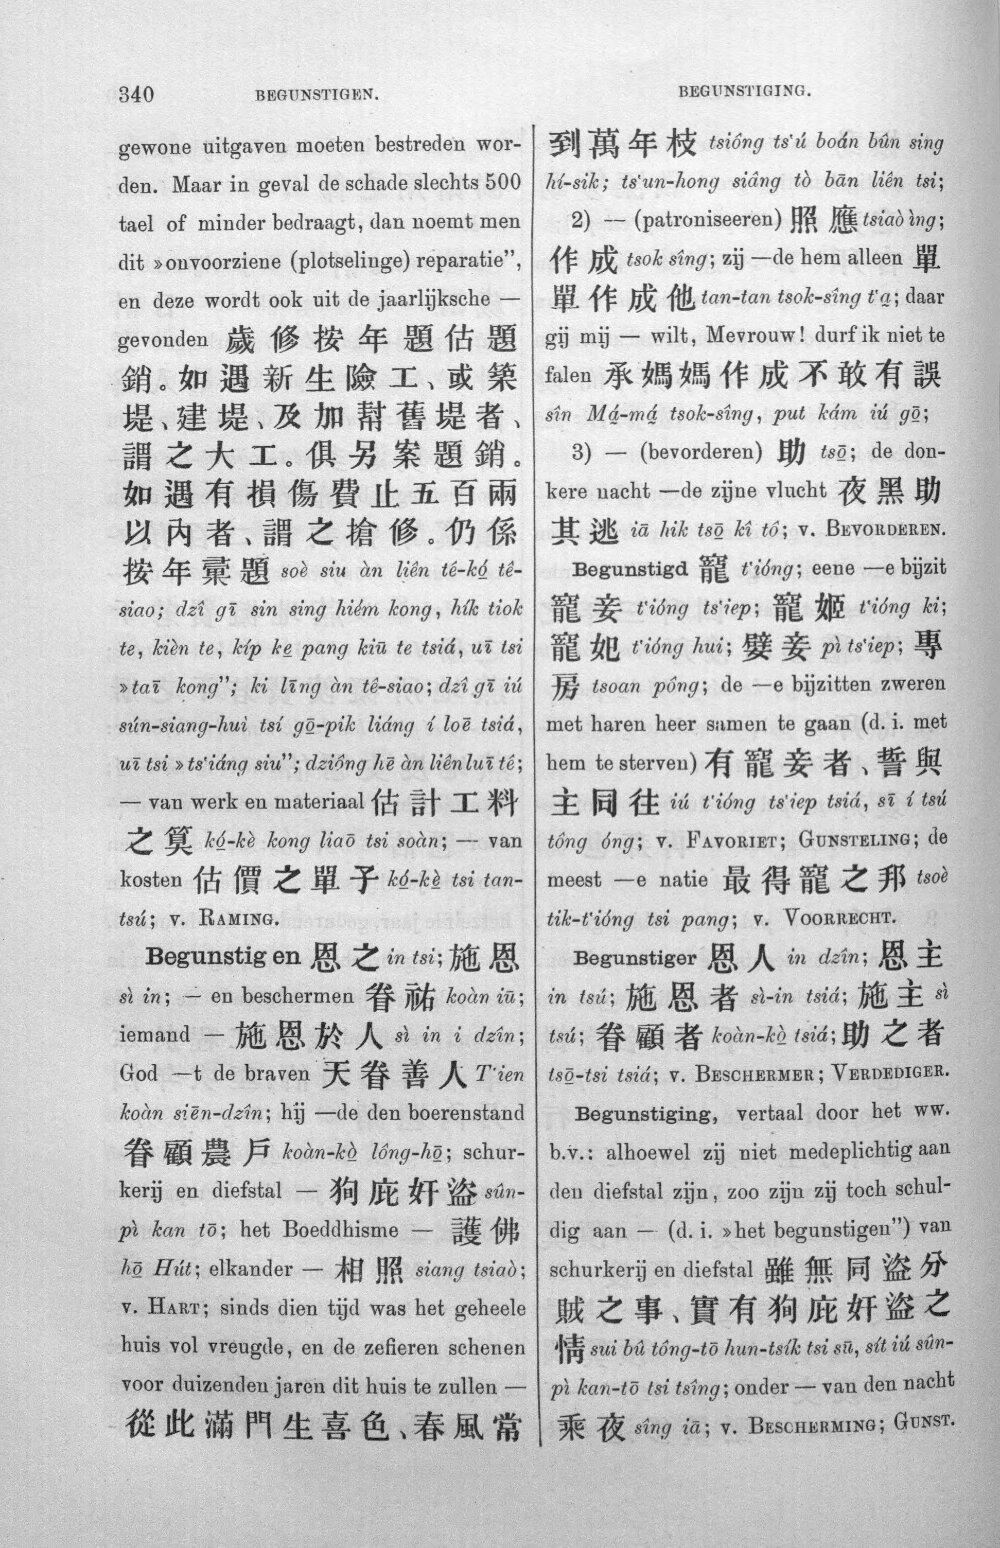 340
BEGUNSTIGEN.
BEGUNSTIGING.
gewone uitgaven moeten bestreden wor-
den. Maar in geval de schade slechts 500
tael of minder bedraagt, dan noemt men
dit »onvoorziene (plotselinge) reparatie”,
en deze wordt ook uit de jaarlijksche —
gevonden 歲修按年題估題
銷。如遇新生險工、或築
堤、建堤、及加幇舊堤者、
謂之大工。俱另案題銷。
如遇有損傷費止五百兩
以內者、謂之搶修。仍係
按年彙題 soè siu àn liên tê-kó̤ tê-
siao; dzî gī sin sing hiém kong, hík tiok
te, kièn te, kíp ke̤ pang kiū te tsiá, uī tsi
»taī kong”; ki līng àn tê-siao; dzî gī iú
sún-siang-huì tsí gō̤-pik liáng í loē tsiá,
uī tsi »ts‘iáng siu”; dziông hē àn liên luī tê;
— van werk en materiaal 估計工料
之算 kó̤-kè kong liaō tsi soàn; — van
kosten 估價之單子 kó̤-kè̤ tsi tan-
tsú; v. RAMING.
Begunstigen 恩之 in tsi; 施恩
sì in; — en beschermen 眷祐 koàn iū;
iemand — 施恩於人 sì in i dzîn;
God —t de braven 天眷善人 T‘ien
koàn siēn-dzîn; hij —de den boerenstand
眷顧農戶 koàn-kò̤ lông-hō̤; schur-
kerij en diefstal — 狥庇奸盜 sûn-
pì kan tō; het Boeddhisme — 護佛
hō̤ Hút; elkander — 相照 siang tsiaò;
v. HART; sinds dien tijd was het geheele
huis vol vreugde, en de zefieren schenen
voor duizenden jaren dit huis te zullen —
從此滿門生喜色、春風常
到萬年枝 tsiông ts‘ú boán bûn sing
hí-sik; ts‘un-hong siâng tò bān liên tsi;
2) — (patroniseeren) 照應 tsiaò ìng;
作成 tsok sîng; zij —de hem alleen 單
單作成他 tan-tan tsok-sîng t‘a̤; daar
gij mij — wilt, Mevrouw! durf ik niet te
falen 承媽媽作成不敢有誤
sîn Má̤-má̤ tsok-sîng, put kám iú gō̤;
3) — (bevorderen) 助 tsō̤; de don-
kere nacht —de zijne vlucht 夜黑助
其逃 iā hik tsō̤ kî tô; v. BEVORDEREN.
Begunstigd 寵 t‘ióng; eene —e bijzit
寵妾 t‘ióng ts‘iep; 寵姬 t‘ióng ki;
寵妃 t‘ióng hui; 嬖妾 pì ts‘iep; 專
房 tsoan pông; de —e bijzitten zweren
met haren heer samen te gaan (d. i. met
hem te sterven) 有寵妾者、誓與
主同往 iú t‘ióng ts‘iep tsiá, sī í tsú
tông óng; v. FAVORIET; GUNSTELING; de
meest —e natie 最得寵之邦 tsoè
tik-t‘ióng tsi pang; v. VOORRECHT.
Begunstiger 恩人 in dzîn; 恩主
in tsú; 施恩者 sì-in tsiá; 施主 sì
tsú; 眷顧者 koàn-kò̤ tsiá; 助之者
tsō̤-tsi tsiá; v. BESCHERMER; VERDEDIGER.
Begunstiging, vertaal door het ww.
b.v.: alhoewel zij niet medeplichtig aan
den diefstal zijn, zoo zijn zij toch schul-
dig aan — (d. i. »het begunstigen”) van
schurkerij en diefstal 雖無同盜分
賊之事、實有狥庇奸盜之
情 sui bû tông-tō hun-tsík tsi sū, sít iú sûn-
pì kan-tō tsi tsîng; onder — van den nacht
乘夜 sîng iā; v. BESCHERMING; GUNST.